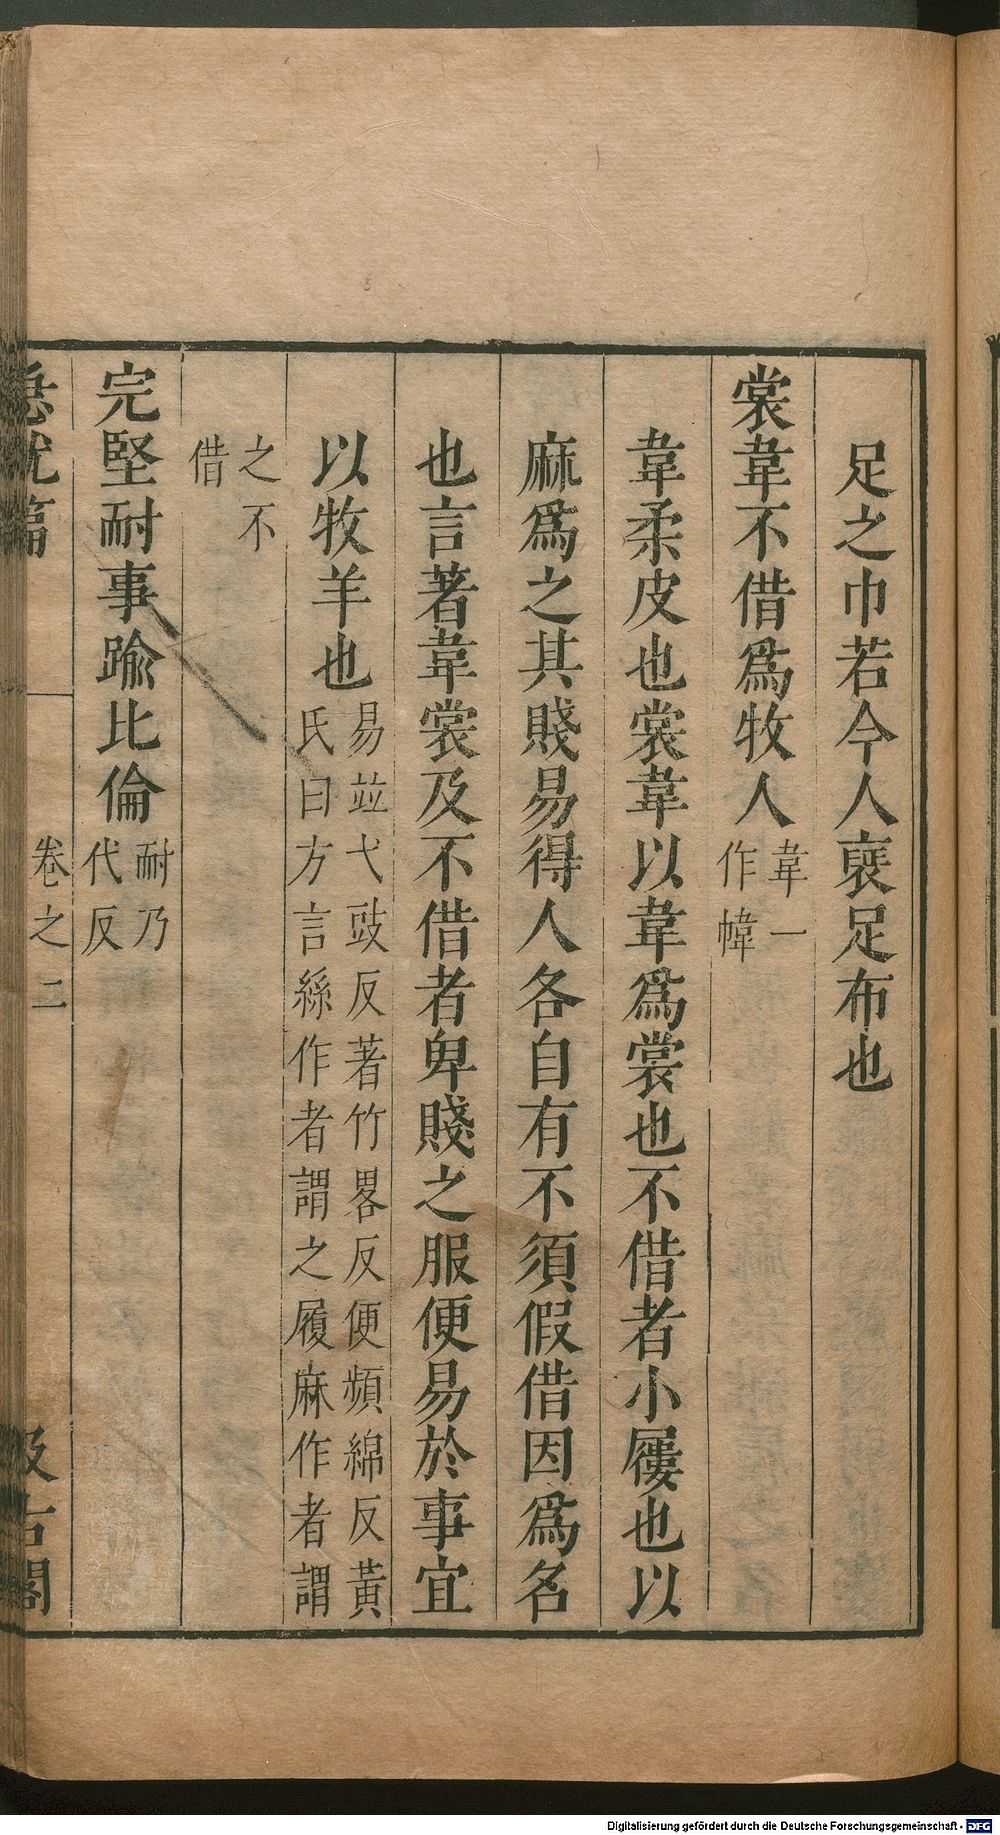 足之巾若今人裹足布也
裳韋不借爲牧人韋一作幃
韋柔皮也裳韋以韋爲裳也不借者小屨也以
麻爲之其賤易得人各自有不須假借因爲名
也言著韋裳及不借者卑賤之服便易於事宜
以牧羊也易並弋豉反著竹畧反便頻綿反黃氏曰方言絲作者謂之履麻作者謂
之不借
完堅耐事踰比倫耐乃代反
急就篇 卷之二 汲古閣
Digitalisierung gefördert durch die Deutsche Forschungsgemeinschaft - DFG